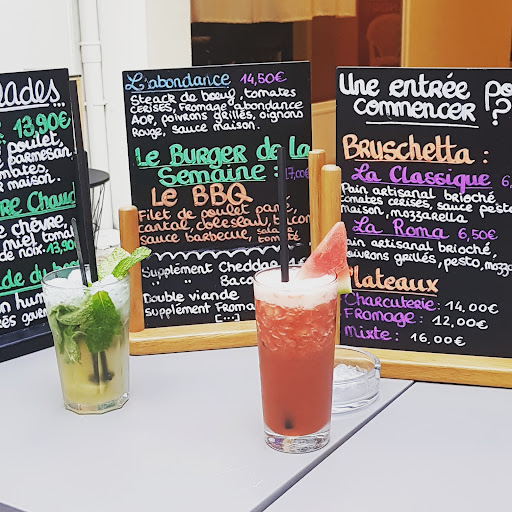 lades
13,90€
poulet,
parmesan
mates,
maison.
Chaud
chèvre,
miel
de noix. 13,90
de du
L'abondance 14,50€
Steack de bœuf, tomates
cerises, Fromage abondance
AOP, poivrons grillés, oignons
Rouge, sauce maison.
Le Burger de la
Semaine : 17,00€
Le BBQ
Filet de poulet pané,
cantal,
sauce barbecue, salade
tomate
Supplément Cheddar
" " Bacon
Double viande
Supplément Fromage
[...]
Une entrée po
commencer ?
Bruschetta :
La Classique 6,
Pain artisanal brioché
tomates cerises, sauce pesto
maison, mozzarella
La Roma 6,50€
Pain artisanal brioché,
poivrons grillés, pesto, mozza
Plateaux
Charcuterie : 14,00€
Fromage : 12,00€
Mixte : 16,00€